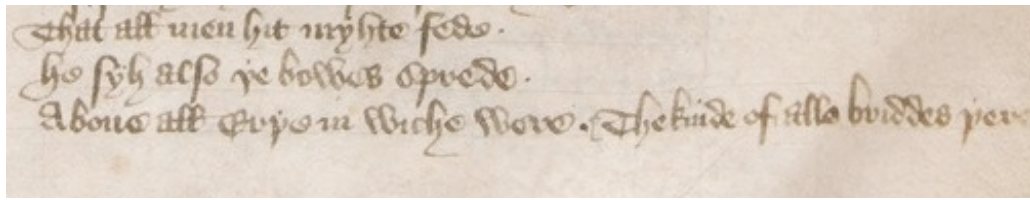 That all men hit myhte fede.
he syh also þe bowes sprede.
Aboue all Erþe in wiche were. The kinde of alle briddes þere